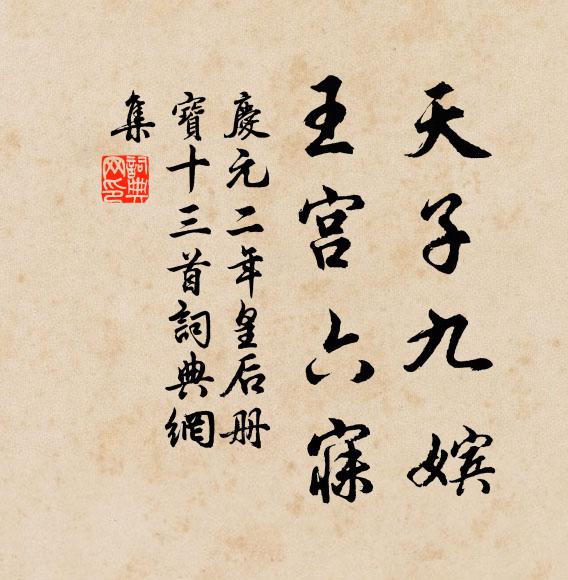 天子九嬪
王宮六寐
慶元二年皇后册
寶十三首詞典網
集
詞典
网印